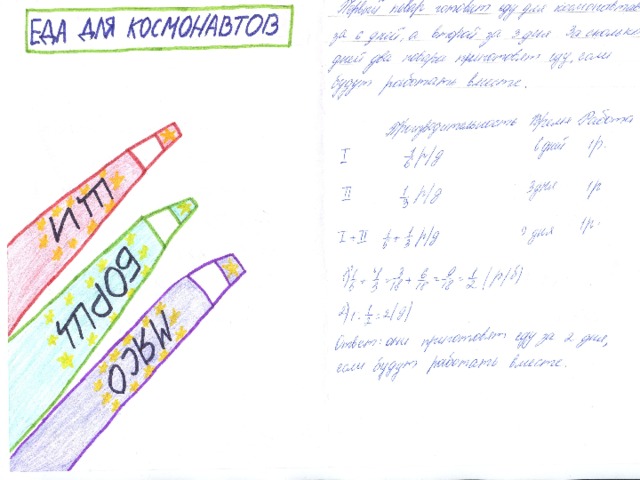 ЕДА ДЛЯ КОСМОНАВТОВ
ЩИ
БОРЩ
МЯСО
Первый повар готовит еду для космонавтов
за 6 дней, а второй за 3 дня. За сколько
дней два повара приготовят еду, если
будут работать вместе.
Производительность Время Работа
I 1/6 р/д 6 дней 1р.
II 1/3 р/д 3 дня 1р
I + II 1/6 + 1/3 р/д ? дня 1р.
1) 1/6 + 1/3 = 3/18 + 6/18 = 9/18 = 1/2 (р/д)
2) 1 : 1/2 = 2 (д)
Ответ: они приготовят еду за 2 дня,
если будут работать вместе.